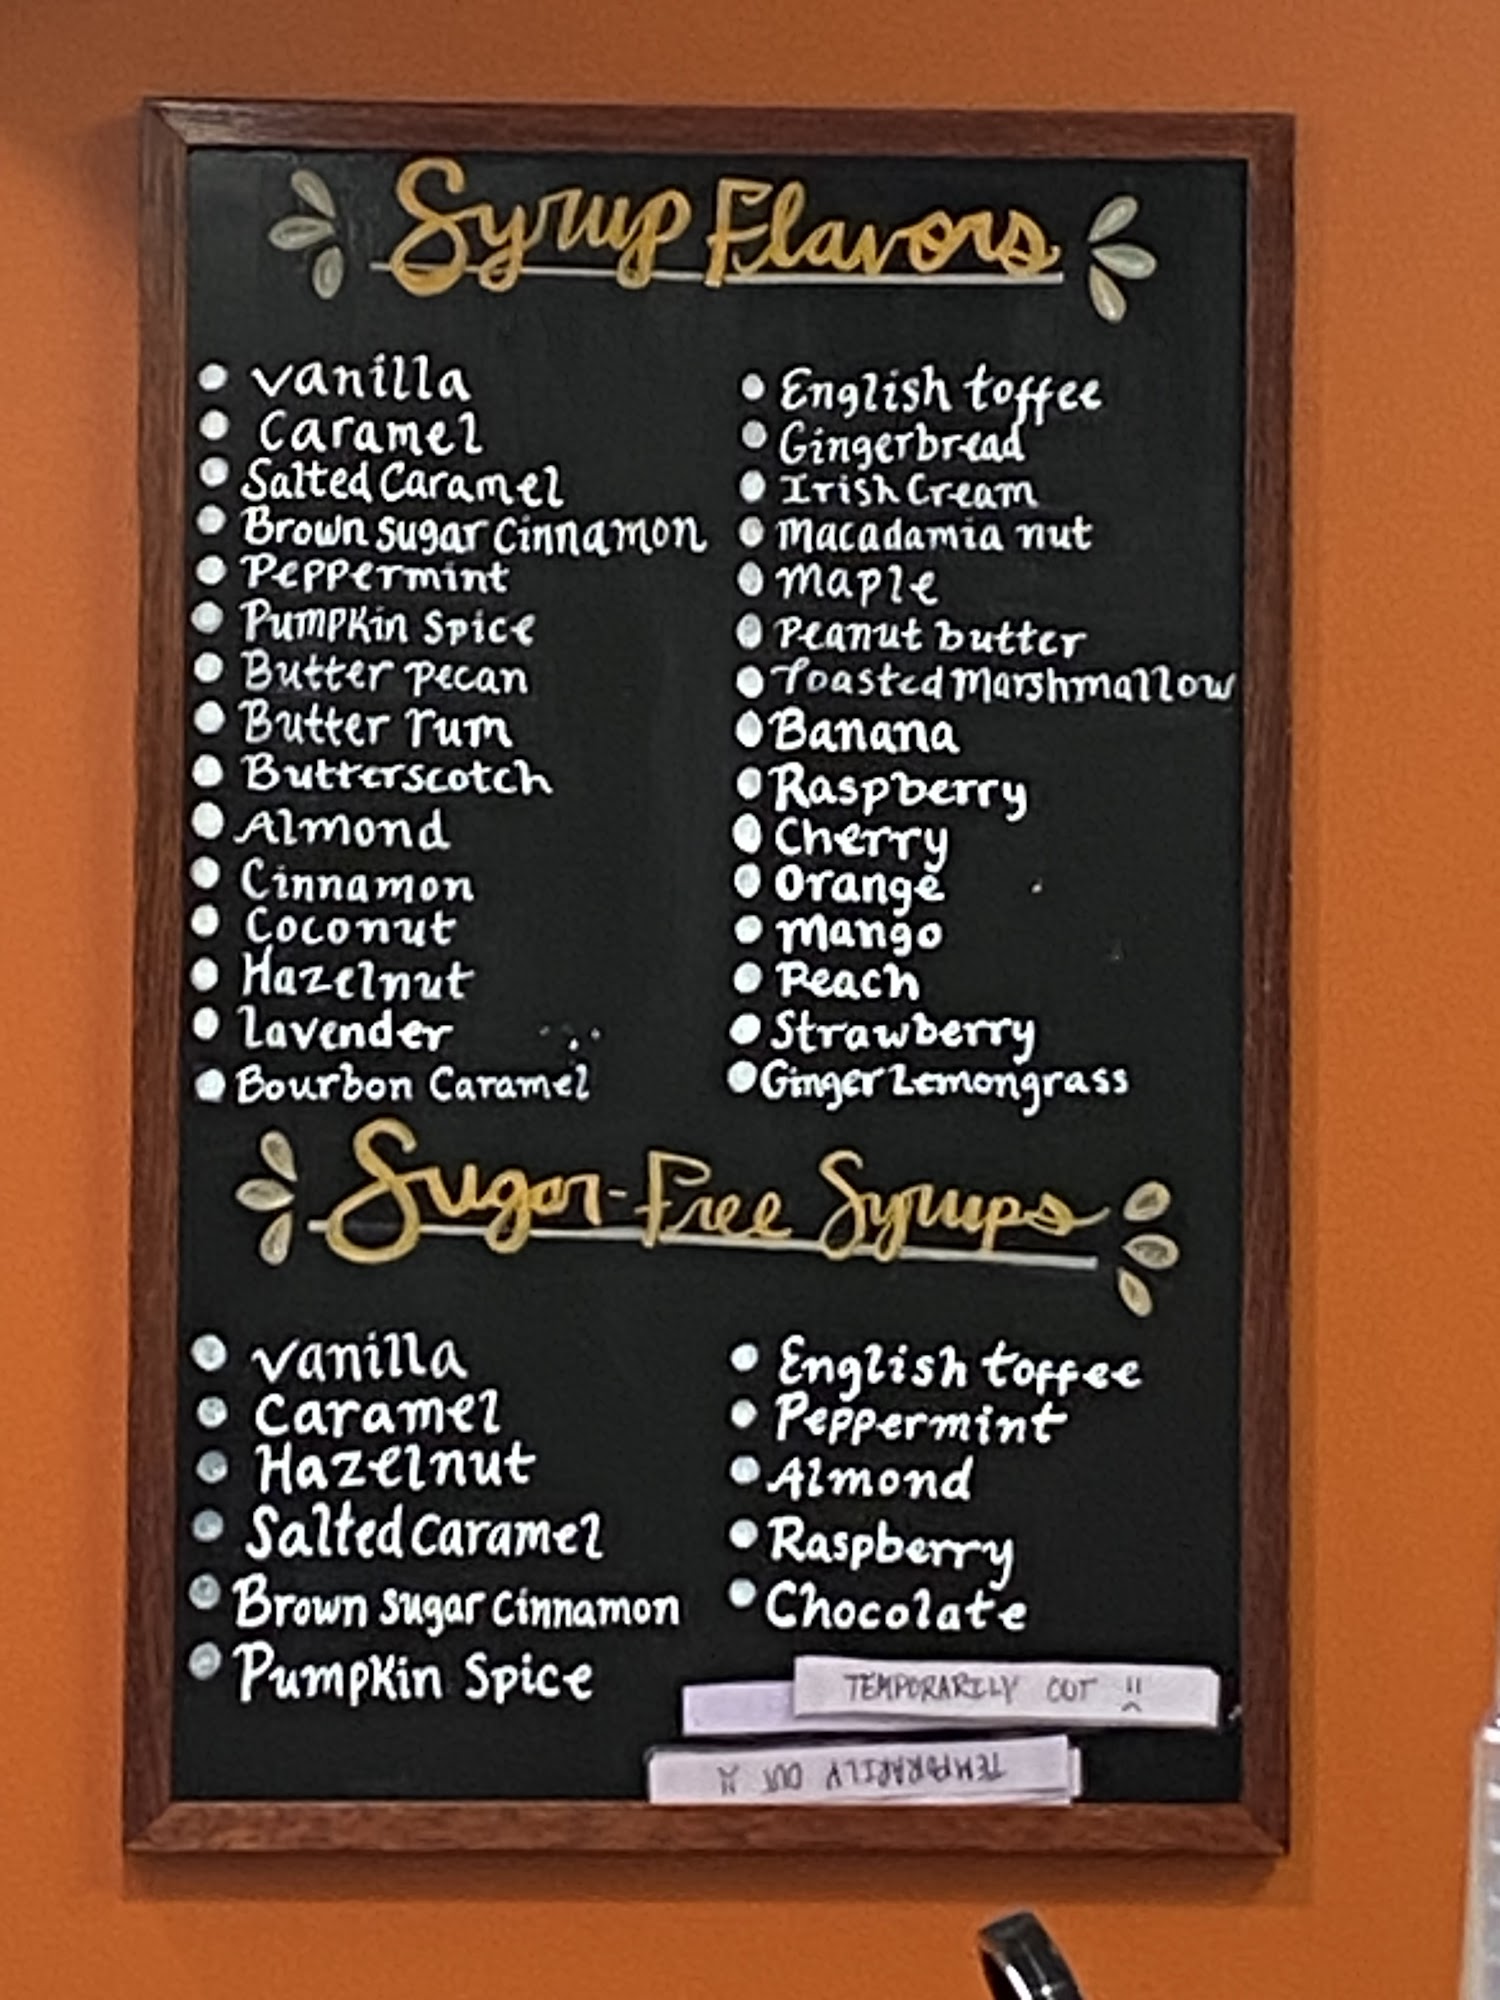 Syrup Flavors
vanilla
Caramel
Salted Caramel
Brown sugar cinnamon
Peppermint
Pumpkin Spice
Butter pecan
Butter rum
Butterscotch
Almond
Cinnamon
Coconut
Hazelnut
lavender
Bourbon Caramel
English toffee
Gingerbread
Irish Cream
Macadamia nut
maple
Peanut butter
Toasted Marshmallow
Banana
Raspberry
Cherry
Orange
Mango
Peach
Strawberry
Ginger Lemongrass
Sugar-Free Syrups
vanilla
Caramel
Hazelnut
Salted Caramel
Brown sugar cinnamon
Pumpkin Spice
English toffee
Peppermint
Almond
Raspberry
Chocolate
TEMPORARILY OUT
TEMPORARILY OUT